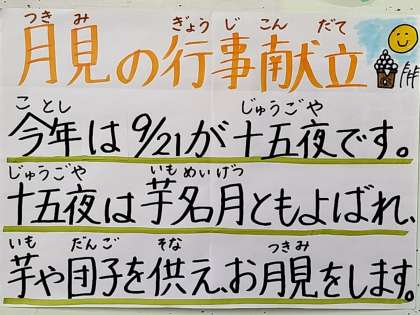 つきみ ぎょうじ こん だて
月見の行事献立
ことし じゅうごや
今年は9/21が十五夜です。
じゅうごや いもめいげつ
十五夜は芋名月ともよばれ、
いも だんご そな つきみ
芋や団子を供え、お月見をします。